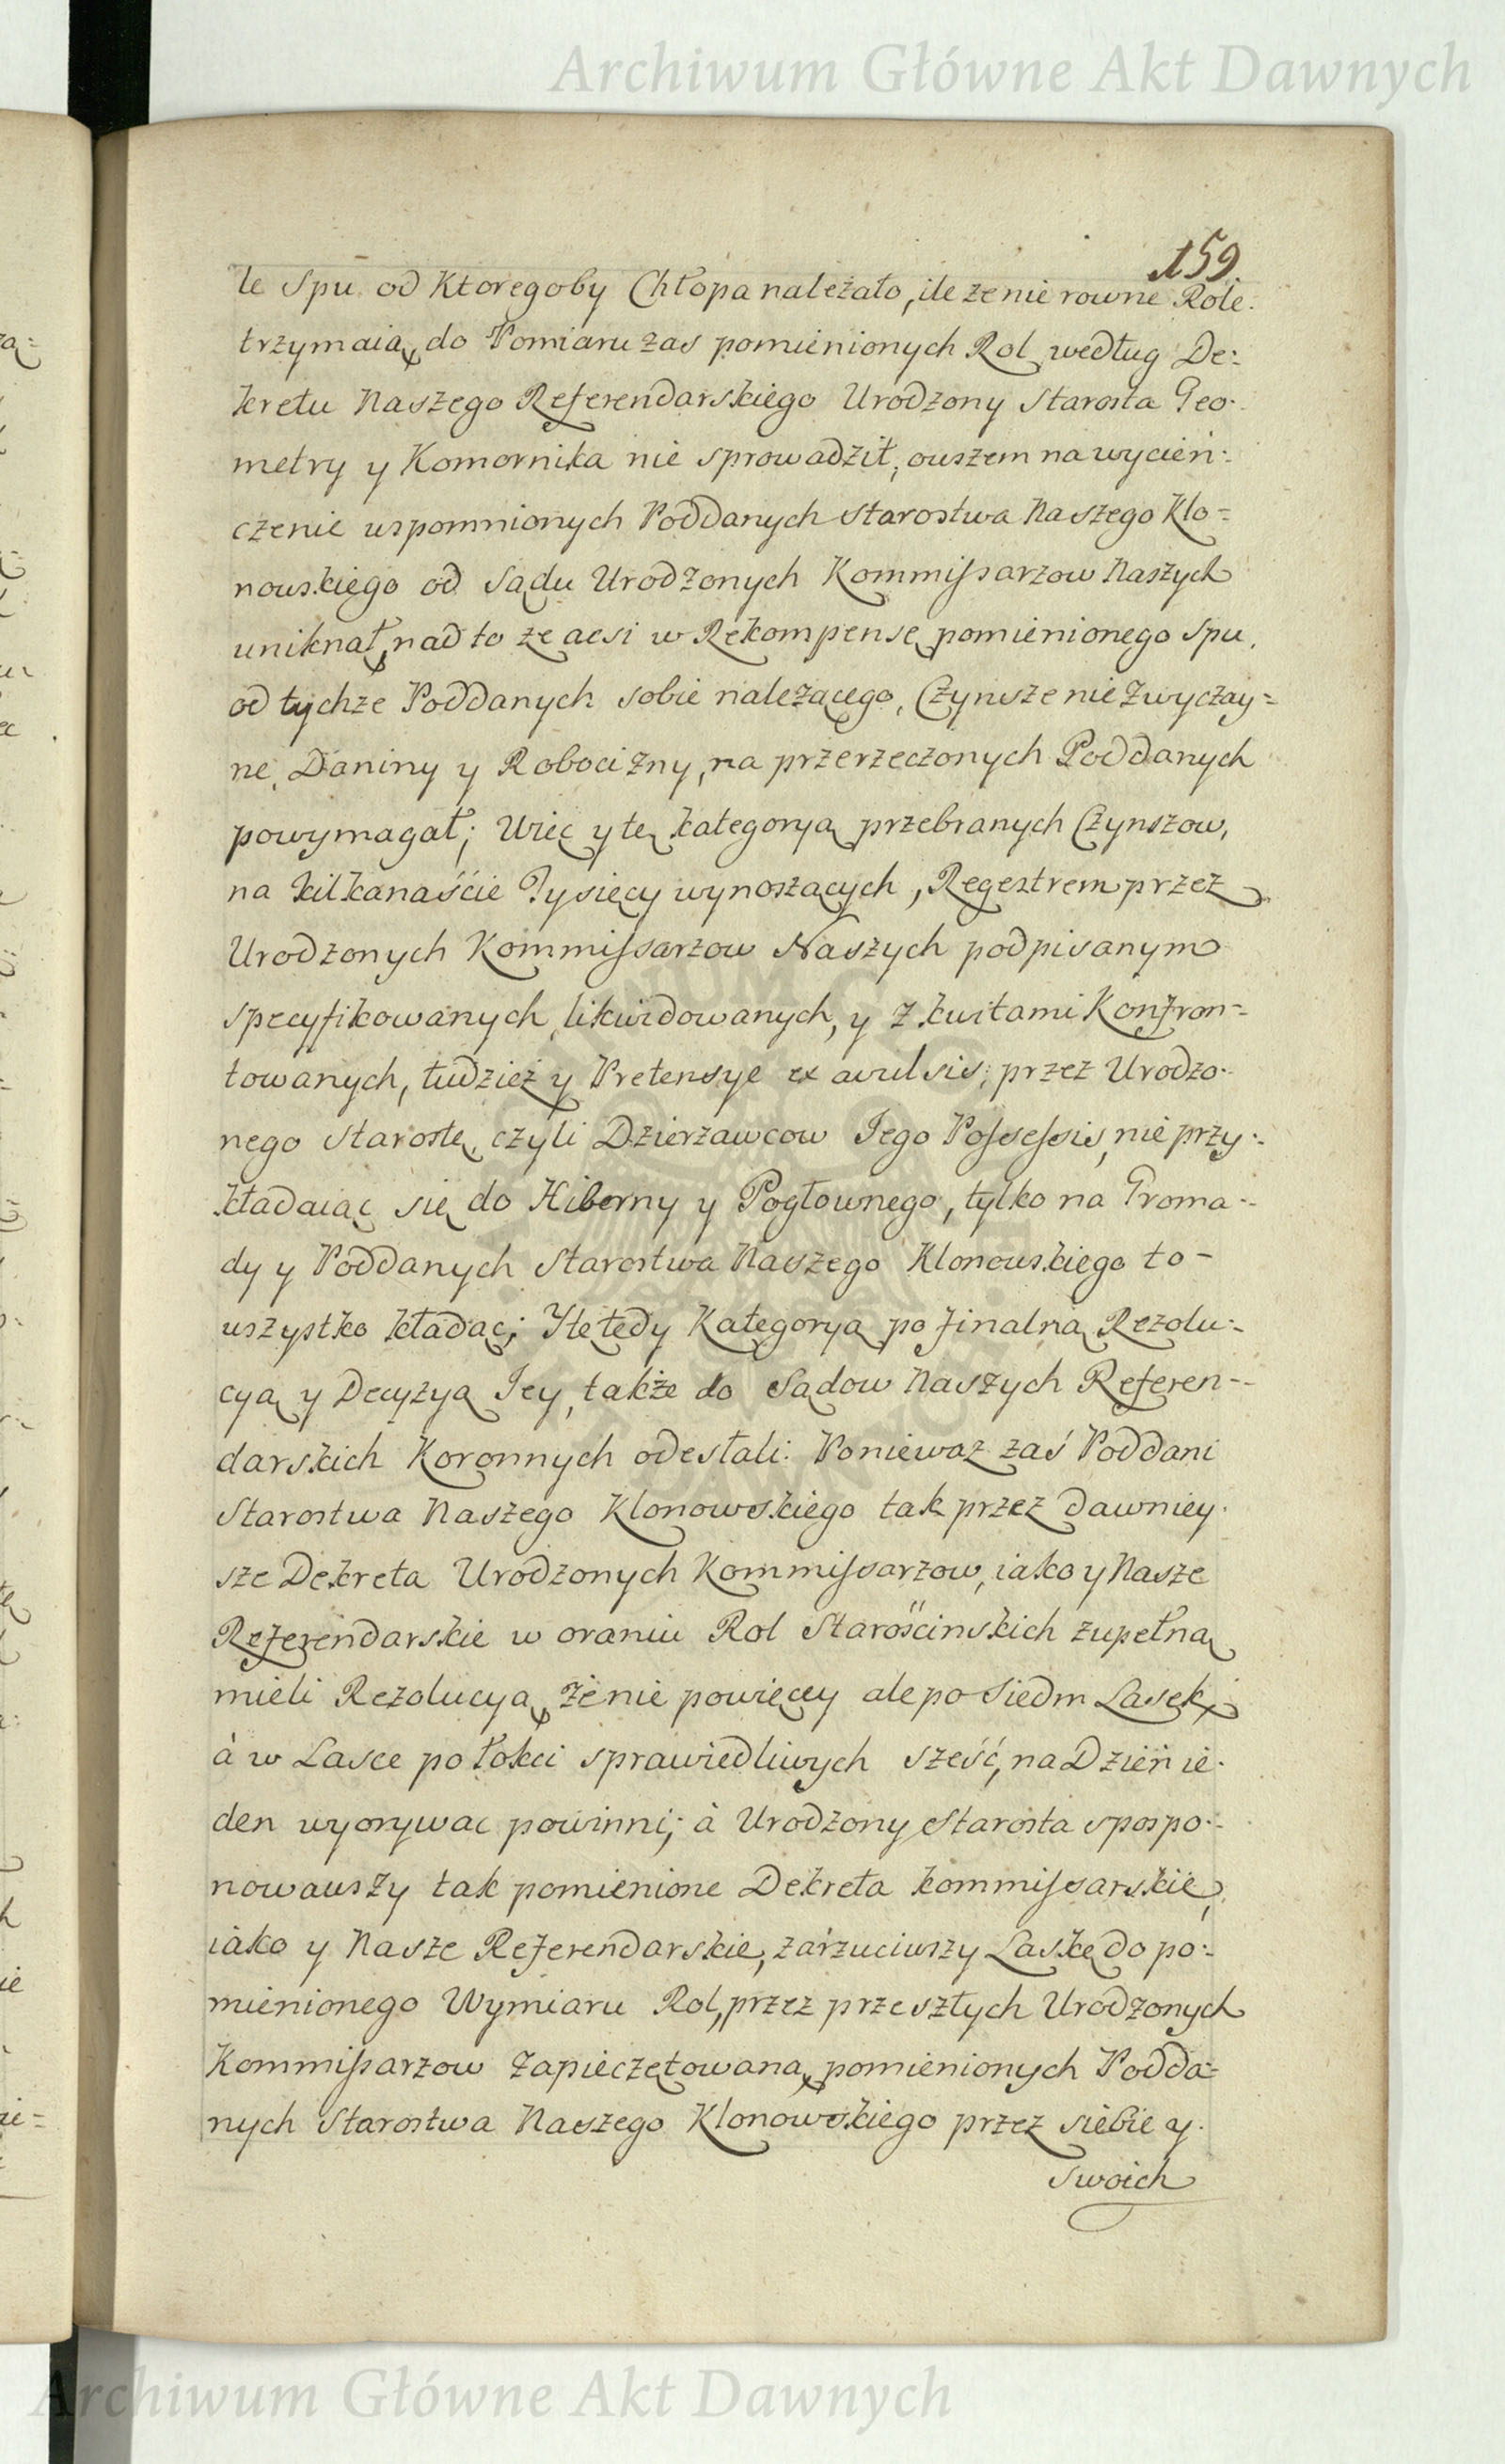 Archiwum Główne Akt Dawnych
159.
le Spu od Ktoregoby Chłopa należało, ile ze nie rowne Role
trzymaią, do Pomiaru zas pomienionych Rol według De=
kretu Naszego Referendarskiego Urodzony Starosta Geo-
metry y Komornika nie sprowadził, owszem na wycień-
czenie wspomnionych Poddanych Starostwa Naszego Klo=
nowskiego od Sądu Urodzonych Kommissarzow Naszych
uniknął, nad to że acsi w Rekompensę pomienionego Spu,
od tychże Poddanych sobie należącego, Czynsze nie Zwyczay=
ne, Daniny y Robocizny, na przerzeczonych Poddanych
powymagał; Więc y tę kategoryą przebranych Czynszow,
na kilkanaście Tysięcy wynoszących, Regestrem przez
Urodzonych Kommissarzow Naszych podpisanym
specyfikowanych, likwidowanych, y z kwitami Konfron=
towanych, tudzież y Pretensye ex avulsis, przez Urodzo-
nego Starostę, czyli Dzierzawcow Jego Possessis, nie przy-
kładaiąc się do Hiberny y Pogłownego, tylko na Groma-
dy y Poddanych Starostwa Naszego Klonowskiego to-
wszystko kładąc; Y tę tedy Kategoryą po finalną Rezolu-
cyą y Decyzyą Jey, także do Sądow Naszych Referen-
darskich Koronnych odesłali: Ponieważ zaś Poddani
Starostwa Naszego Klonowskiego tak przez dawniey-
sze Dekreta Urodzonych Kommissarzow, iako y Nasze
Referendarskie w oraniu Rol Starościnskich zupełną
mieli Rezolucyą, że nie powięcey ale po Siedm Lasek,
à w Lasce po łokci sprawiedliwych sześć, na Dzień ie-
den wyorywac powinni; à Urodzony Starosta spospo-
nowawszy tak pomienione Dekreta kommissarskie,
iako y Nasze Referendarskie, zarzuciwszy Laskę do po-
mienionego Wymiaru Rol, przez przeszłych Urodzonych
Kommissarzow Zapieczętowaną, pomienionych Podda=
nych Starostwa Naszego Klonowskiego przez siebie y
Swoich
Archiwum Główne Akt Dawnych